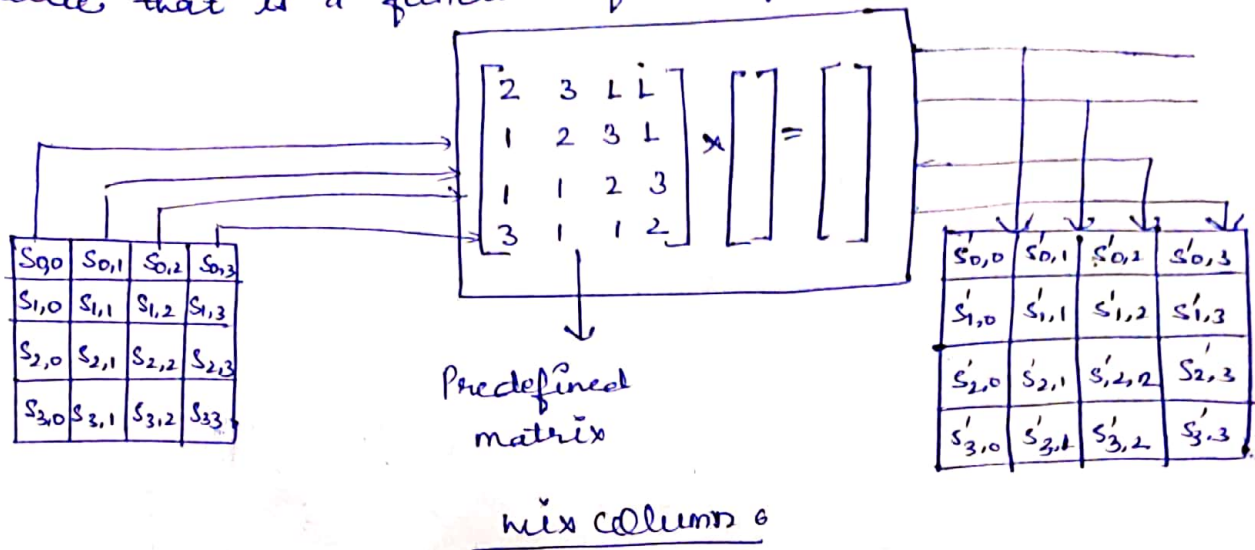 that is a
2 3 1 1
1 2 3 1
1 1 2 3
3 1 1 2
x =
S0,0 S0,1 S0,2 S0,3
S1,0 S1,1 S1,2 S1,3
S2,0 S2,1 S2,2 S2,3
S3,0 S3,1 S3,2 S33
Predefined
matrix
S'0,0 S'0,1 S'0,2 S'0,3
S'1,0 S'1,1 S'1,2 S'1,3
S'2,0 S'2,1 S'2,2 S2,'3
S'3,0 S'3,1 S'3,2 S'3.3
mix column